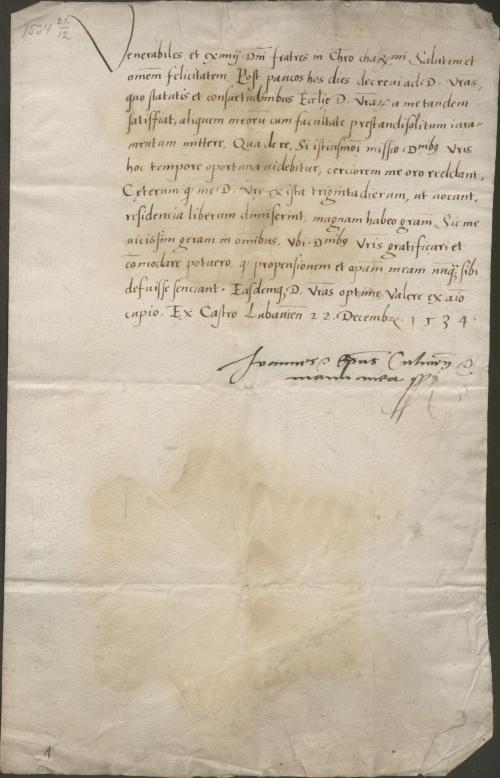 1534 22/12
Venerabiles et eximij Dnī fratres in Chro charmi Salutem et
omem felicitatem. Post paucos hos dies decrevi ad D. Vras,
quo statutis et consuetudinibus Ecclie D. Vrar a me tandem
satisfiat, aliquem meoru cum facultate prestandi solitum iura=
mentum mittere. Qua de re, Si istiusmoi missio Dnibg Vris
hoc tempore oportuna videbitur, cerciorem me oro reddant.
Cęterum q me D. Vre ex ista triginta dierum, ut vocant,
residencia liberum dimiserint, magnam habeo gram. Sic me
vicissim geram in omnibus, Ubi Dnibg Vris gratificari et
comodare potuero, q propensionem et opam meam nuq sibi
defuisse senciant. Easdemq D. Vras optime Valere ex aio
cupio. Ex Castro Lubavien 22. Decembr. 1534.
Joannes Epus Culmen
manu mea